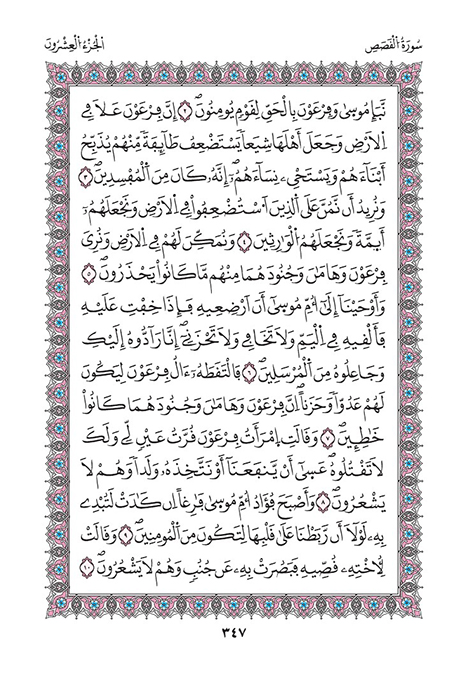 سُورَةُ الْقَصَصِ
الْجُزْءُ الْعِشْرُونَ
نَّبَإِ مُوسَىٰ وَفِرْعَوْنَ بِالْحَقِّ لِقَوْمٍ يُومِنُونَۖ ٢ إِنَّ فِرْعَوْنَ عَلَا فِے
اِ۬لَارْضِ وَجَعَلَ أَهْلَهَا شِيَعاٗ يَسْتَضْعِفُ طَآئِفَةٗ مِّنْهُمْ يُذَبِّحُ
أَبْنَآءَهُمْ وَيَسْتَحْيِۦ نِسَآءَهُمُۥٓۖ إِنَّهُۥ كَانَ مِنَ اَ۬لْمُفْسِدِينَۖ ٣
وَنُرِيدُ أَن نَّمُنَّ عَلَى اَ۬لذِينَ اَ۟سْتُضْعِفُواْ فِے اِ۬لَارْضِ وَنَجْعَلَهُمُۥٓ
أَيِمَّةٗ وَنَجْعَلَهُمُ اُ۬لْوَٰرِثِينَۖ ٤ وَنُمَكِّنَ لَهُمْ فِے اِ۬لَارْضِ وَنُرِيَ
فِرْعَوْنَ وَهَٰمَٰنَ وَجُنُودَهُمَا مِنْهُم مَّا كَانُواْ يَحْذَرُونَۖ ٥
وَأَوْحَيْنَآ إِلَىٰٓ أُمِّ مُوسَىٰٓ أَنَ اَرْضِعِيهِ فَإِذَا خِفْتِ عَلَيْهِ
فَأَلْقِيهِ فِے اِ۬لْيَمِّ وَلَا تَخَافِے وَلَا تَحْزَنِےٓۖ إِنَّا رَآدُّوهُ إِلَيْكِ
وَجَاعِلُوهُ مِنَ اَ۬لْمُرْسَلِينَۖ ٦ فَالْتَقَطَهُۥٓ ءَالُ فِرْعَوْنَ لِيَكُونَ
لَهُمْ عَدُوّاٗ وَحَزَناًۖ اِنَّ فِرْعَوْنَ وَهَٰمَٰنَ وَجُنُودَهُمَا كَانُواْ
خَٰطِـِٕينَۖ ٧ وَقَالَتِ اِ۪مْرَأَتُ فِرْعَوْنَ قُرَّتُ عَيْنٖ لِّے وَلَكَ
لَا تَقْتُلُوهُ عَسَىٰٓ أَنْ يَّنفَعَنَآ أَوْ نَتَّخِذَهُۥ وَلَداٗ وَهُمْ لَا
يَشْعُرُونَۖ ٨ وَأَصْبَحَ فُؤَادُ أُمِّ مُوسَىٰ فَٰرِغاًۖ اِن كَادَتْ لَتُبْدِے
بِهِۦ لَوْلَآ أَن رَّبَطْنَا عَلَىٰ قَلْبِهَا لِتَكُونَ مِنَ اَ۬لْمُومِنِينَۖ ٩ وَقَالَتْ
لِأُخْتِهِۦ قُصِّيهِۖ فَبَصُرَتْ بِهِۦ عَن جُنُبٖ وَهُمْ لَا يَشْعُرُونَۖ ١٠
٣٤٧